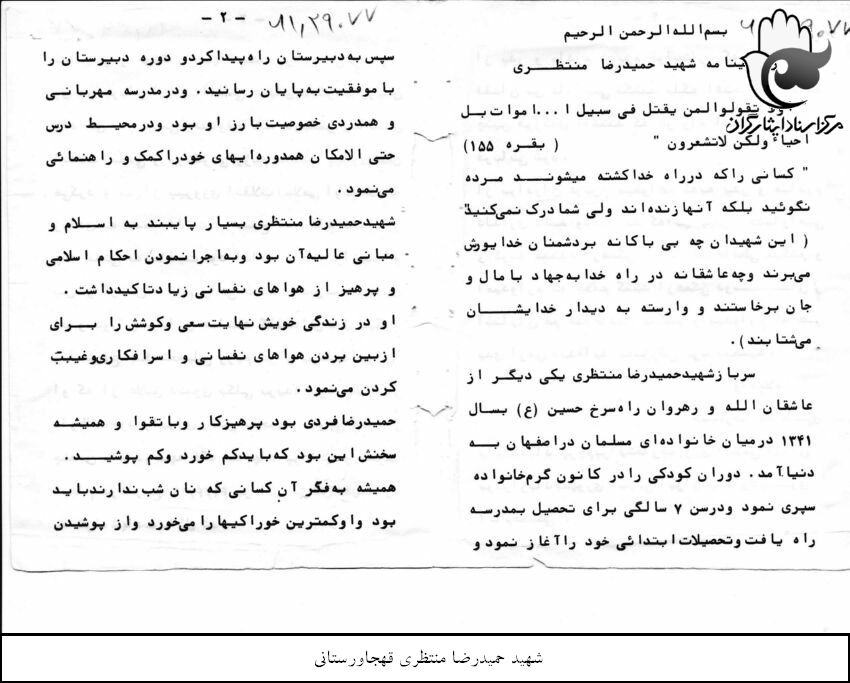 بسم الله الرحمن الرحیم
زندگینامه شهید حمیدرضا منتظری
تقولوالمن یقتل فی سبیل ا...اموات بل
احیاء ولکن لاتشعرون " ( بقره ۱۵۵)
" کسانی راکه درراه خداکشته میشوند مرده
نگوئید بلکه آنهازنده‌اند ولی شمادرک نمی‌کنید"
( این شهیدان چه بی باکانه بردشمنان خدایورش
می‌برند وچه عاشقانه در راه خدابه‌جهاد بامال و
جان برخاستند و وارسته به دیدار خدایشان
می‌شتابند ).
سربازشهیدحمیدرضا منتظری یکی دیگر از
عاشقان الله و رهروان راه سرخ حسین (ع) بسال
۱۳۴۱ درمیان خانواده‌ای مسلمان دراصفهان به
دنیاآمد. دوران کودکی رادر کانون گرم خانواده
سپری نمود ودرسن ۷ سالگی برای تحصیل بمدرسه
راه یافت وتحصیلات ابتدائی خود راآغاز نمود و
۸۱,۲۹۰۷۷ - ۲ -
سپس به‌دبیرستان راه پیداکردو دوره دبیرستان را
باموفقیت به‌پایان رسانید. ودرمدرسه مهربانی
و همدردی خصوصیت بارز او بود ودرمحیط درس
حتی الامکان همدوره‌ایهای خودراکمک و راهنمائی
می‌نمود.
شهیدحمیدرضا منتظری بسیار پایبند به اسلام و
مبانی عالیه‌آن بود وبه‌اجرانمودن احکام اسلامی
و پرهیز از هواهای نفسانی زیادتاکیدداشت.
او در زندگی خویش نهایت سعی وکوشش را برای
ازبین بردن هواهای نفسانی و اسرافکاری‌وغیبت
کردن می‌نمود.
حمیدرضافردی بود پرهیزکار وباتقوا و همیشه
سخنش این بود که‌بایدکم خورد وکم پوشید.
همیشه به‌فکر آن کسانی که نان شب ندارندباید
بود واوکمترین خوراکیهارامی‌خورد واز پوشیدن
مرکز اسناد ایثارگران
شهید حمیدرضا منتظری قهجاورستانی